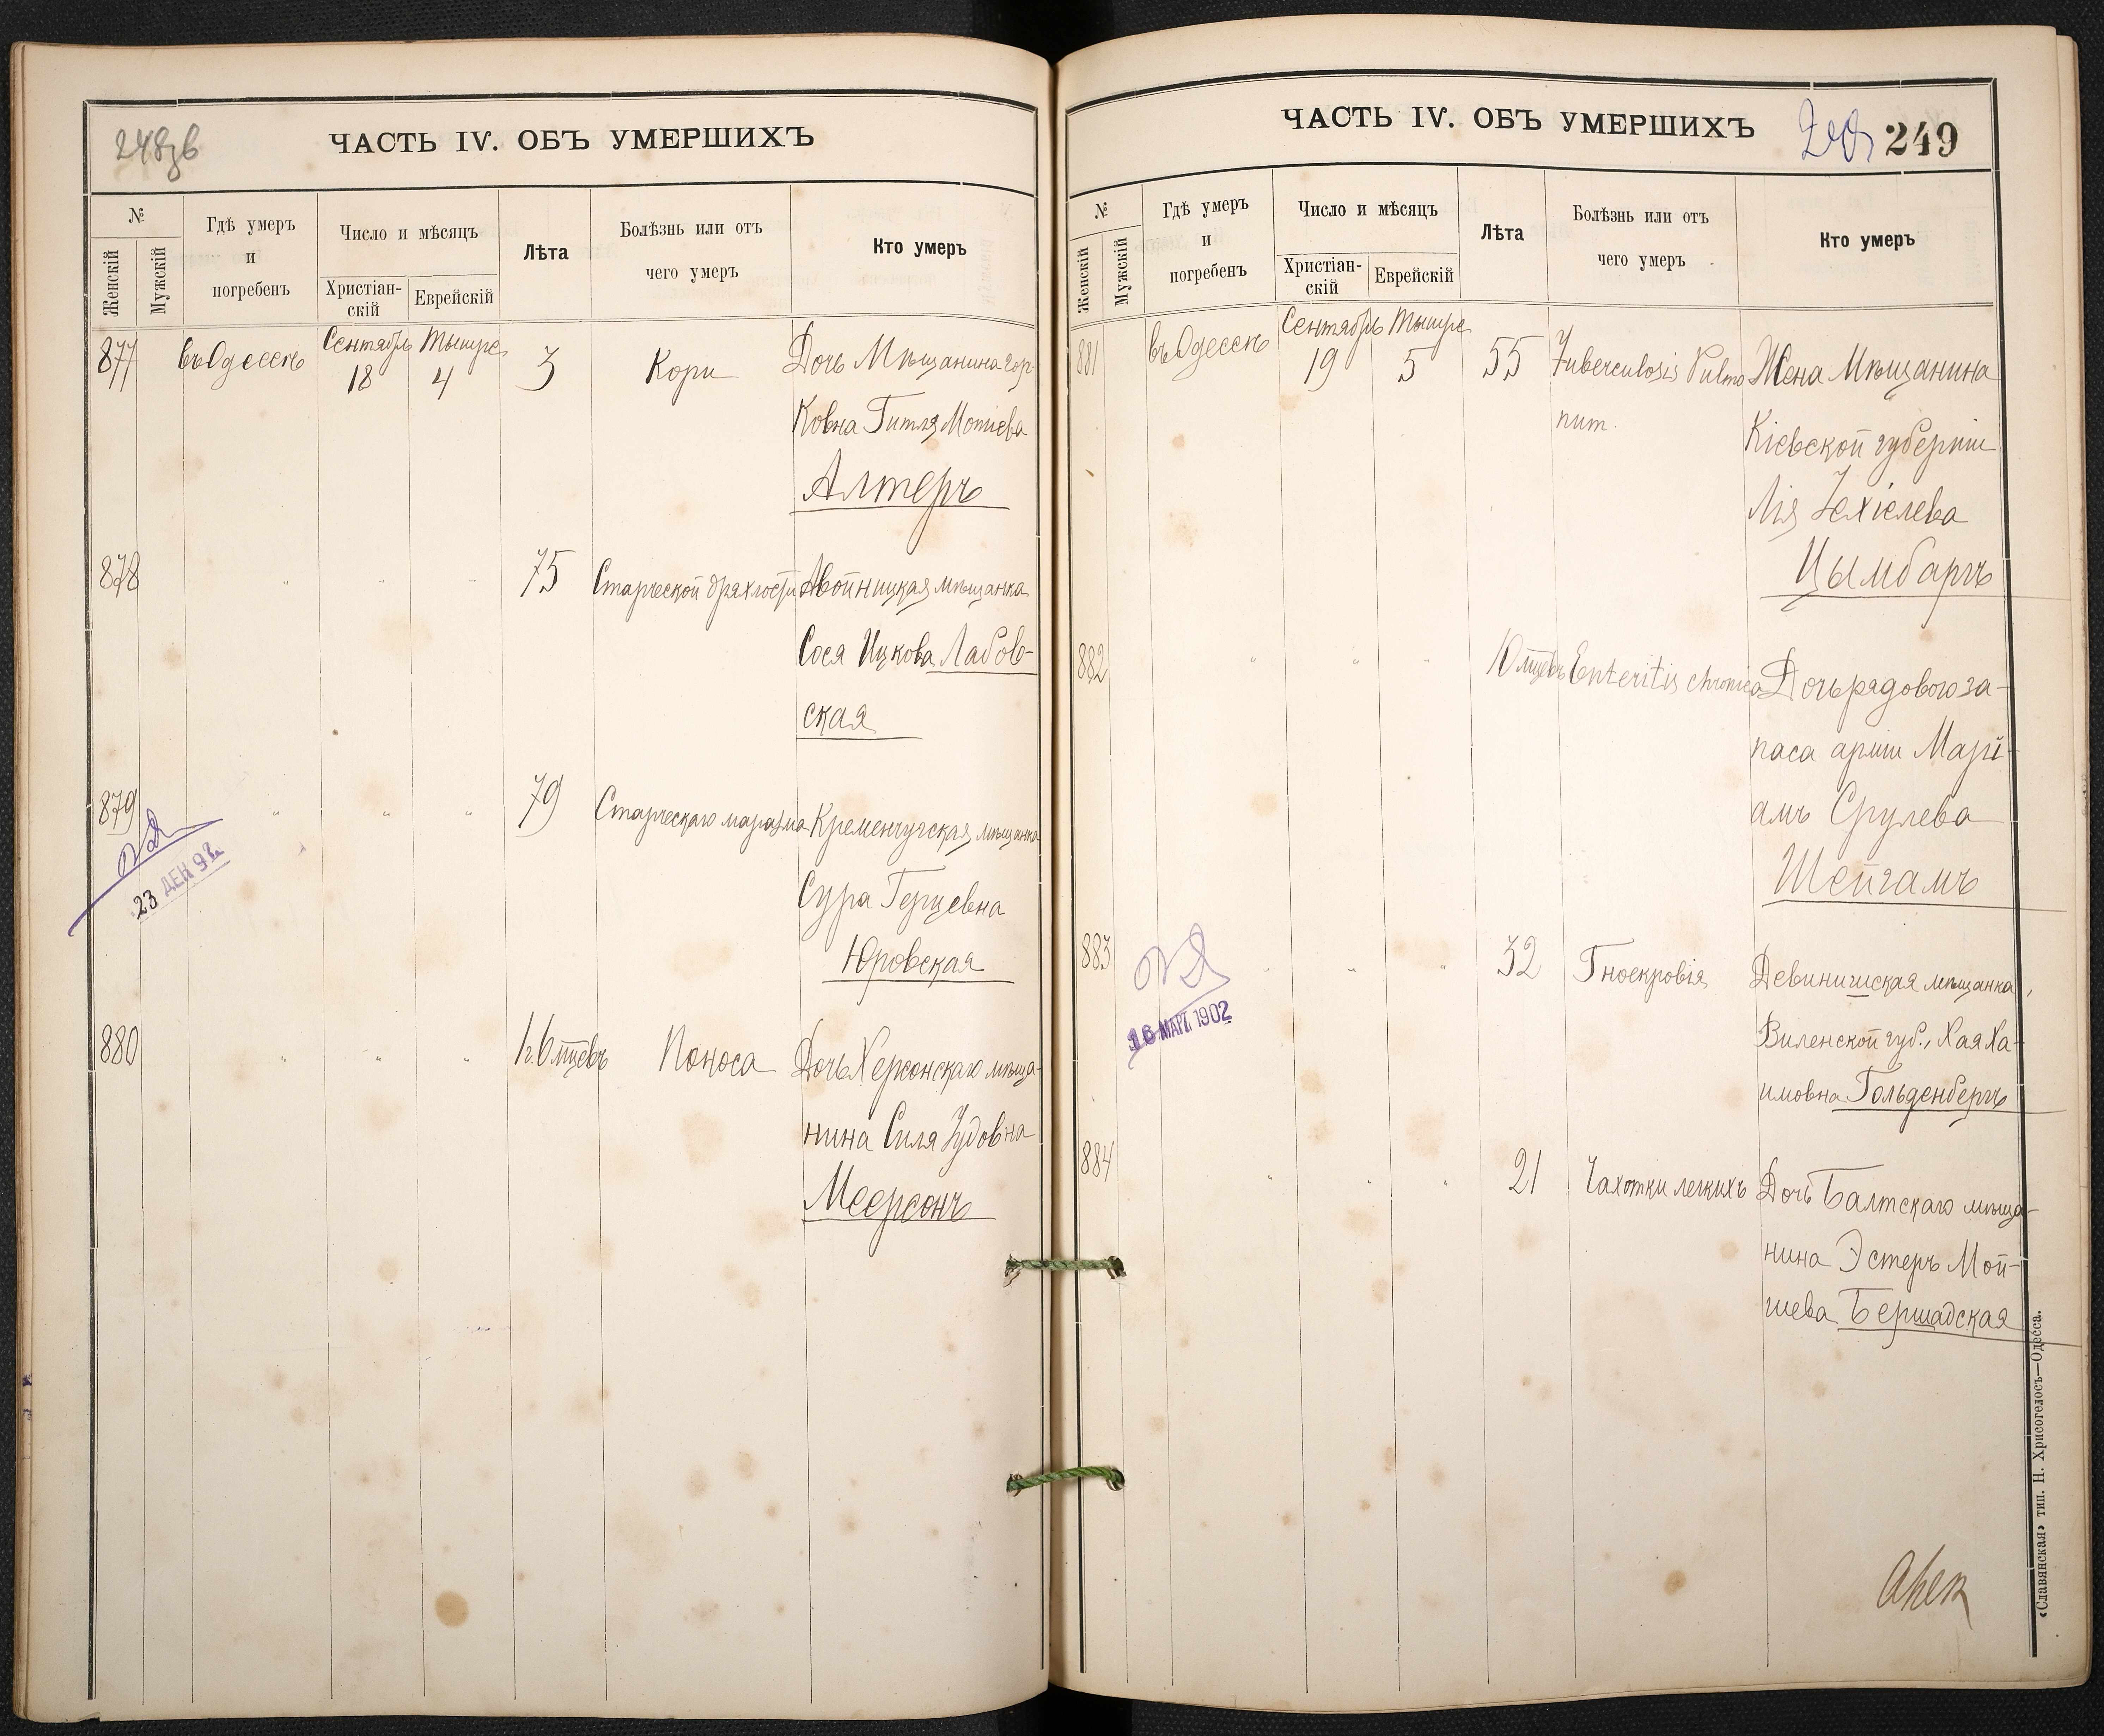 248зв
ЧАСТЬ IV. ОБЪ УМЕРШИХЪ
№
Женскій
Мужскій
Гдѣ умеръ
и
погребенъ
Число и мѣсяцъ
Христіан-
скій
Еврейскій
Лѣта
Болѣзнь или отъ
чего умеръ
Кто умеръ
877 въ Одессѣ Сентябрь 18 Тышре 4 3 Кори Дочь Мѣщанина гор.
Ковна Гитля Мотіева
Алтеръ
878 " " " 75 Старческой дряхлости Двойницкая мѣщанка
Сося Ицкова Лабов-
ская
879 " " " 79 Старческаго маразма Кременчугская мѣщанка
Сура Герцевна
Юровская
23 ДЕК 9
880 " " " 1 г. 6 мцевъ Поноса Дочь Херсонскаго мѣща-
нина Силя Іудовна
Меерсонъ
ЧАСТЬ IV. ОБЪ УМЕРШИХЪ
249
№
Женскій
Мужскій
Гдѣ умеръ
и
погребенъ
Число и мѣсяцъ
Христіан-
скій
Еврейскій
Лѣта
Болѣзнь или отъ
чего умеръ
Кто умеръ
881 въ Одессѣ Сентябрь 19 Тышре 5 55 Tuberculosis Pulmo Жена Мѣщанина
num. Кіевской губерніи
Лія Іехіелева
Цымбаръ
882 " " " 10 мцевъ Enteritis chronica Дочь рядового за-
паса арміи Марі-
амъ Срулева
Шейгамъ
883 " " " 32 Гноекровія Девинишская мѣщанка,
Виленской губ., Хая Ха-
имовна Гольденбергъ
16 МАР. 1902
884 " " " 21 Чахотки легкихъ Дочь Балтскаго мѣща-
нина Эстеръ Мой-
шева Бершадская
«Славянская» тип. Н. Хрисогелосъ—Одесса.